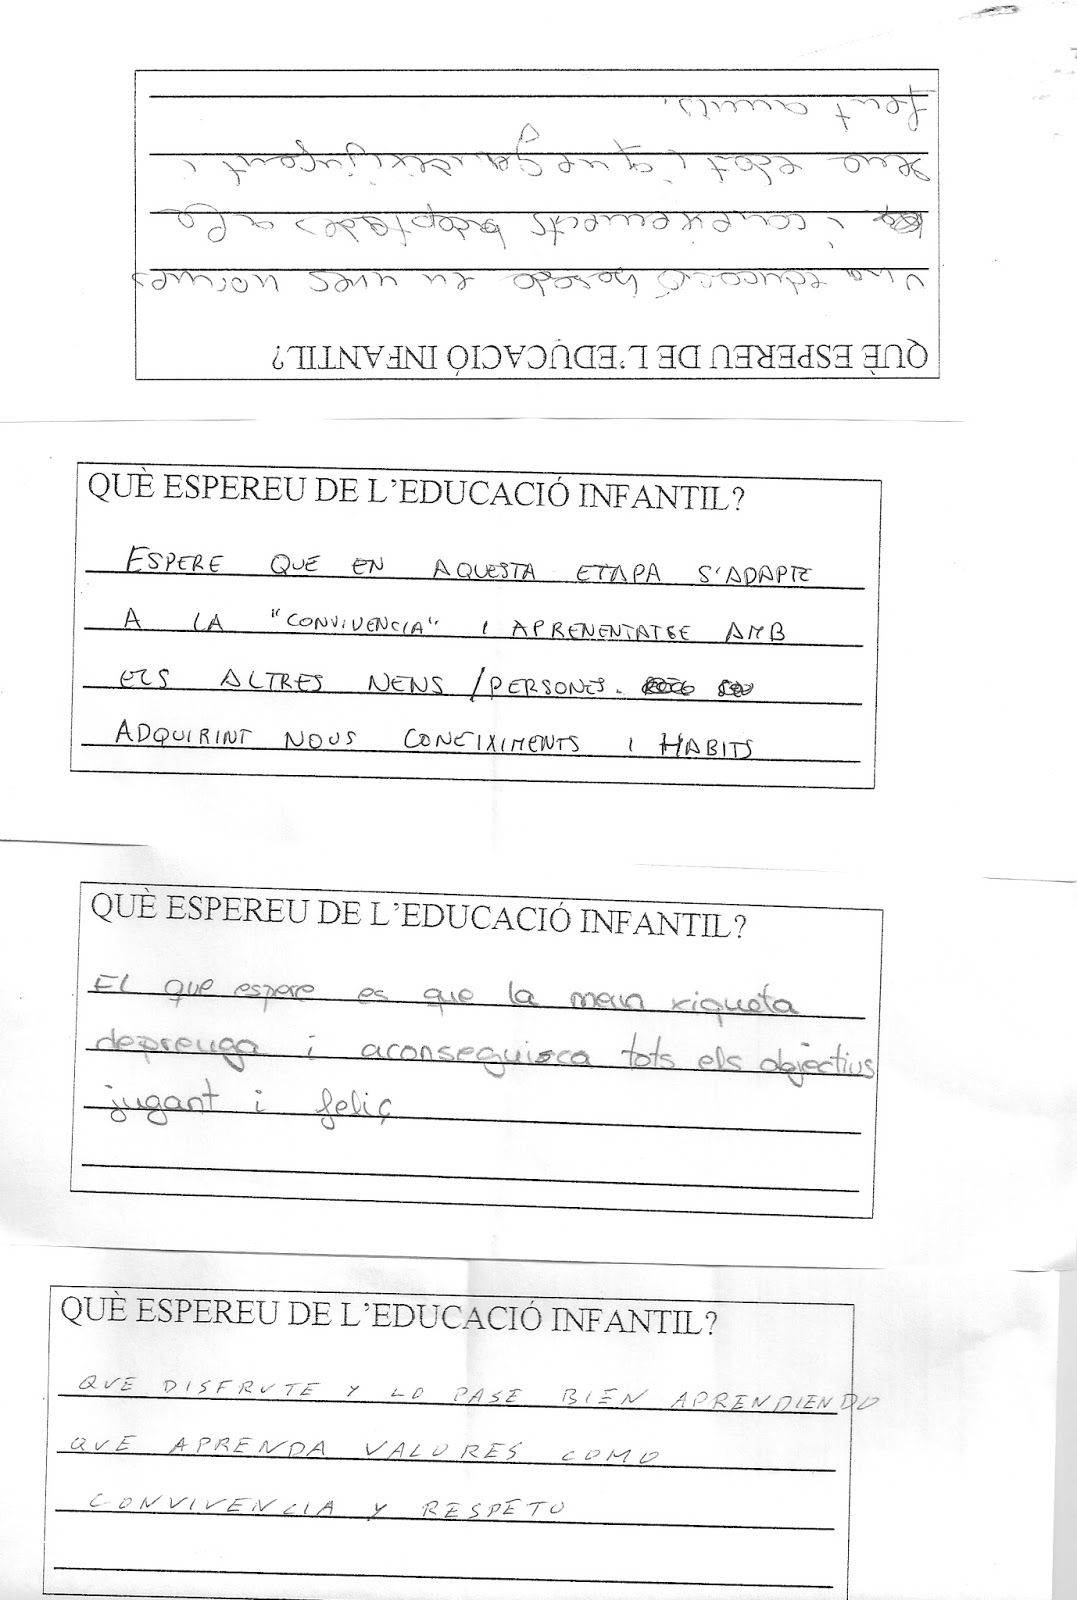 QUÈ ESPEREU DE L'EDUCACIÓ INFANTIL?
Una educació basada en unes normes
i coneixements adaptades a la
seua edat i que gaudeixi jugant i
fent amics.
QUÈ ESPEREU DE L'EDUCACIÓ INFANTIL?
ESPERE QUE EN AQUESTA ETAPA S'ADAPTE
A LA "CONVIVENCIA" I APRENENTATGE AMB
ELS ALTRES NENS / PERSONES.
ADQUIRINT NOUS CONEIXIMENTS I HABITS
QUÈ ESPEREU DE L'EDUCACIÓ INFANTIL?
El que espere es que la meua xiqueta
deprenga i aconseguisca tots els objectius
jugant i feliç
QUÈ ESPEREU DE L'EDUCACIÓ INFANTIL?
QUE DISFRUTE Y LO PASE BIEN APRENDIENDO
QUE APRENDA VALORES COMO
CONVIVENCIA Y RESPETO